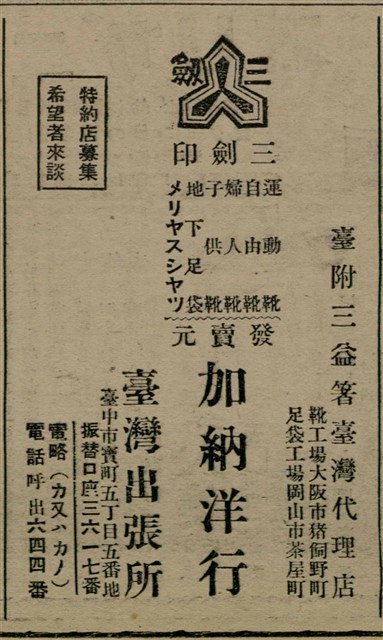 三 劍
三 劍 印
運動靴
自由靴
婦人靴
子供靴
地下足袋
メリヤスシヤツ
發賣元
加納洋行
臺灣出張所
臺中市寳町五丁目五番地
振替口座三六一七番
電略(カ又ハカノ)
電話呼出六四四番
臺附三益箸臺灣代理店
靴工場大阪市猪飼野町
足袋工場岡山市茶屋町
特約店募集
希望者來談